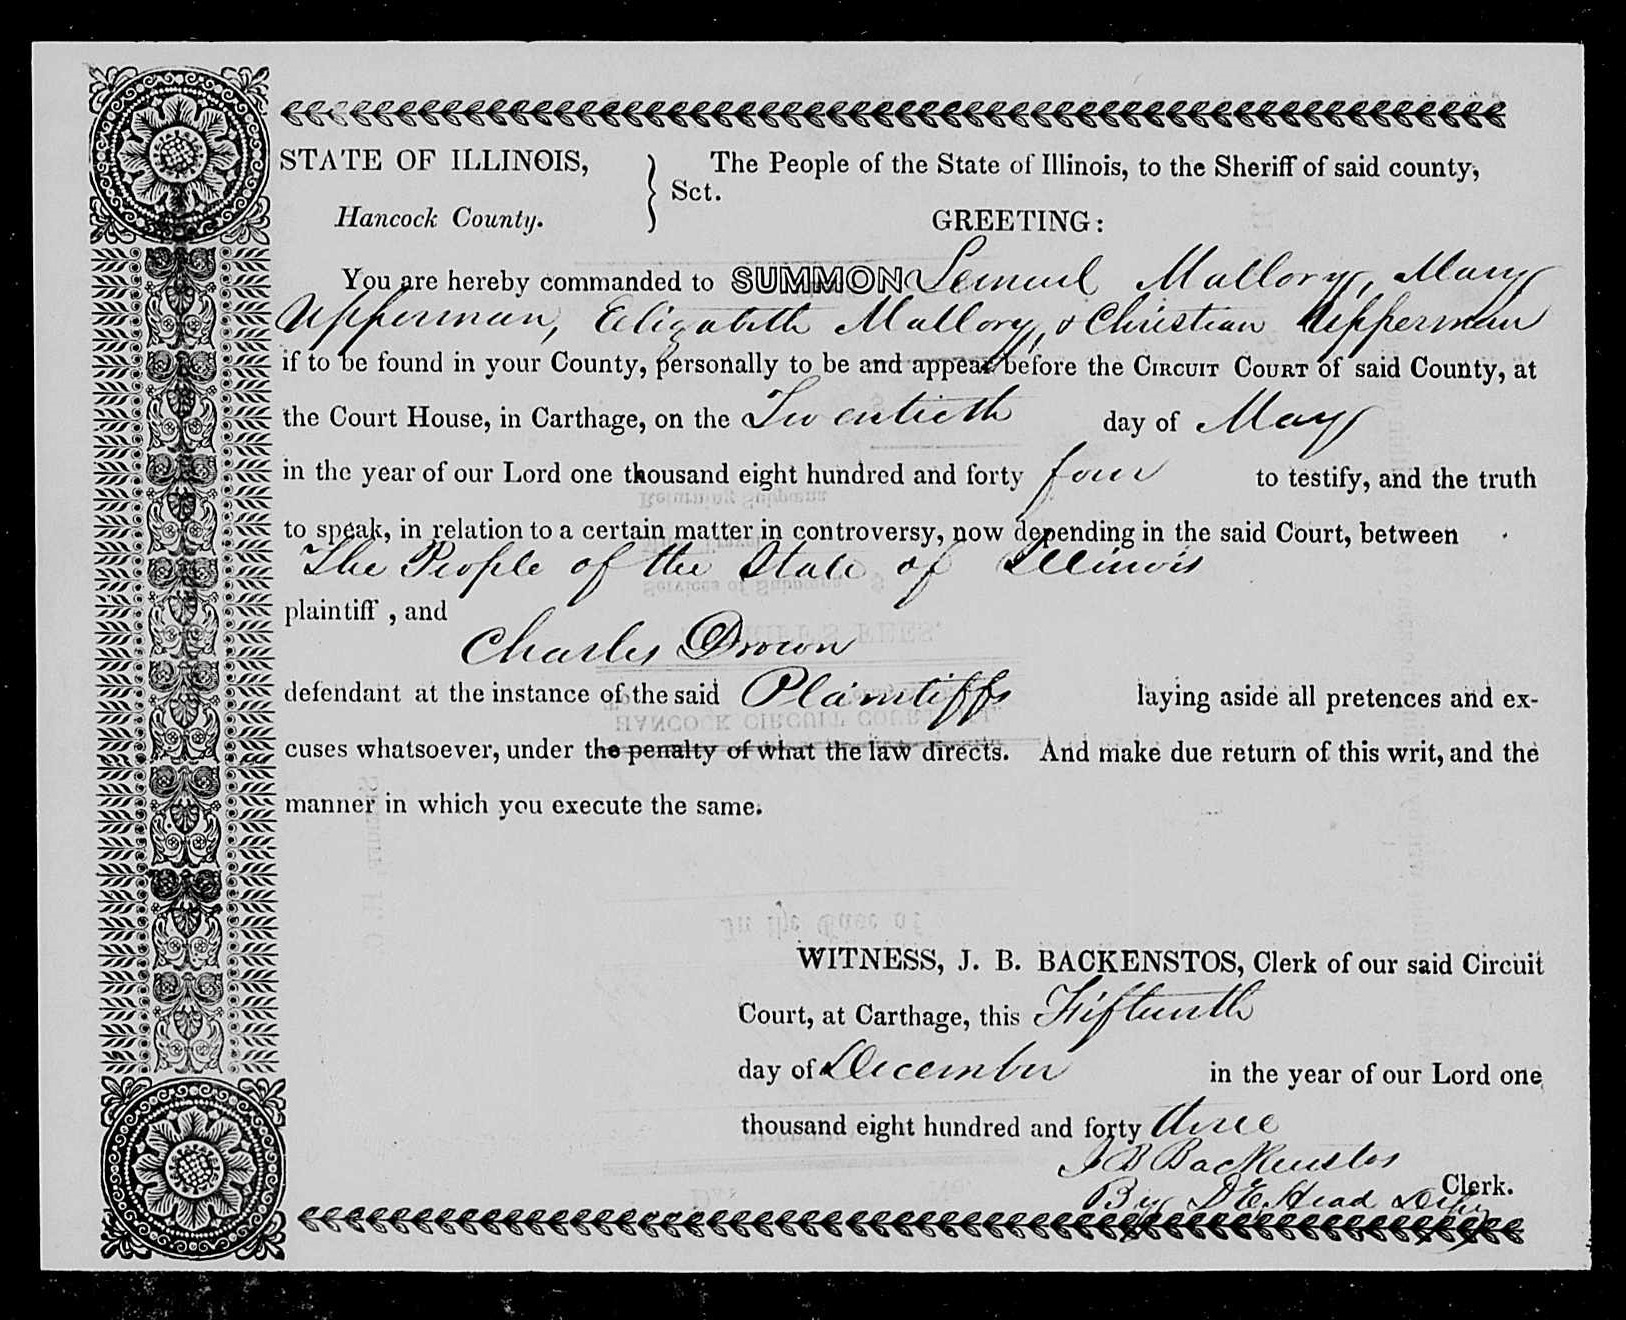 STATE OF ILLINOIS, } Sct. The People of the State of Illinois, to the Sheriff of said county,
Hancock County. GREETING:
You are hereby commanded to SUMMON Lemuel Mallory, Mary
Upperman, Elizabeth Mallory, & Christian Upperman
if to be found in your County, personally to be and appear before the CIRCUIT COURT of said County, at
the Court House, in Carthage, on the Twentieth day of May
in the year of our Lord one thousand eight hundred and forty four to testify, and the truth
to speak, in relation to a certain matter in controversy, now depending in the said Court, between
The People of the State of Illinois
plaintiff , and
Charles Drown
defendant at the instance of the said Plaintiffs laying aside all pretences and ex-
cuses whatsoever, under the penalty of what the law directs. And make due return of this writ, and the
manner in which you execute the same.
WITNESS, J. B. BACKENSTOS, Clerk of our said Circuit
Court, at Carthage, this Fifteenth
day of December in the year of our Lord one
thousand eight hundred and forty three
J B Backenstos
Clerk.
By D E Head Depy